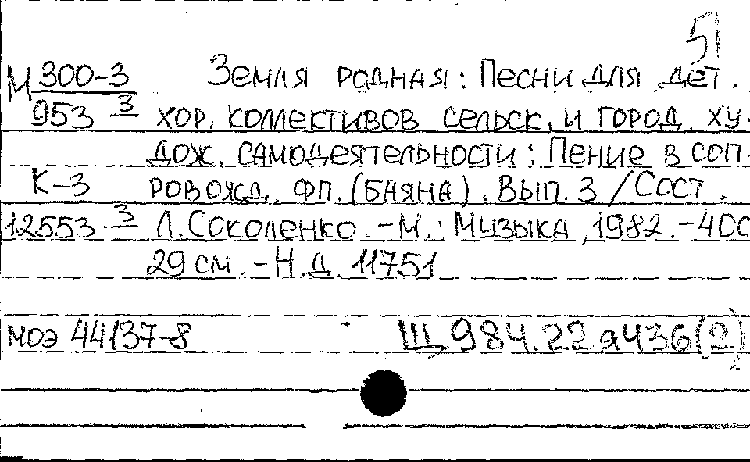 51
М 300-3 Земля родная: Песни для дет.
953 3 хор. коллективов сельск. и город. ху-
дож. самодеятельности: Пение в соп-
К-3 ровожд. фп. (баяна). Вып. 3 / Сост.
12553 3 Л. Соколенко. - М.: Музыка, 1982. - 40с
29 см. - Н.д. 11751
МОЭ 44137-8 Щ984.22я436(2)